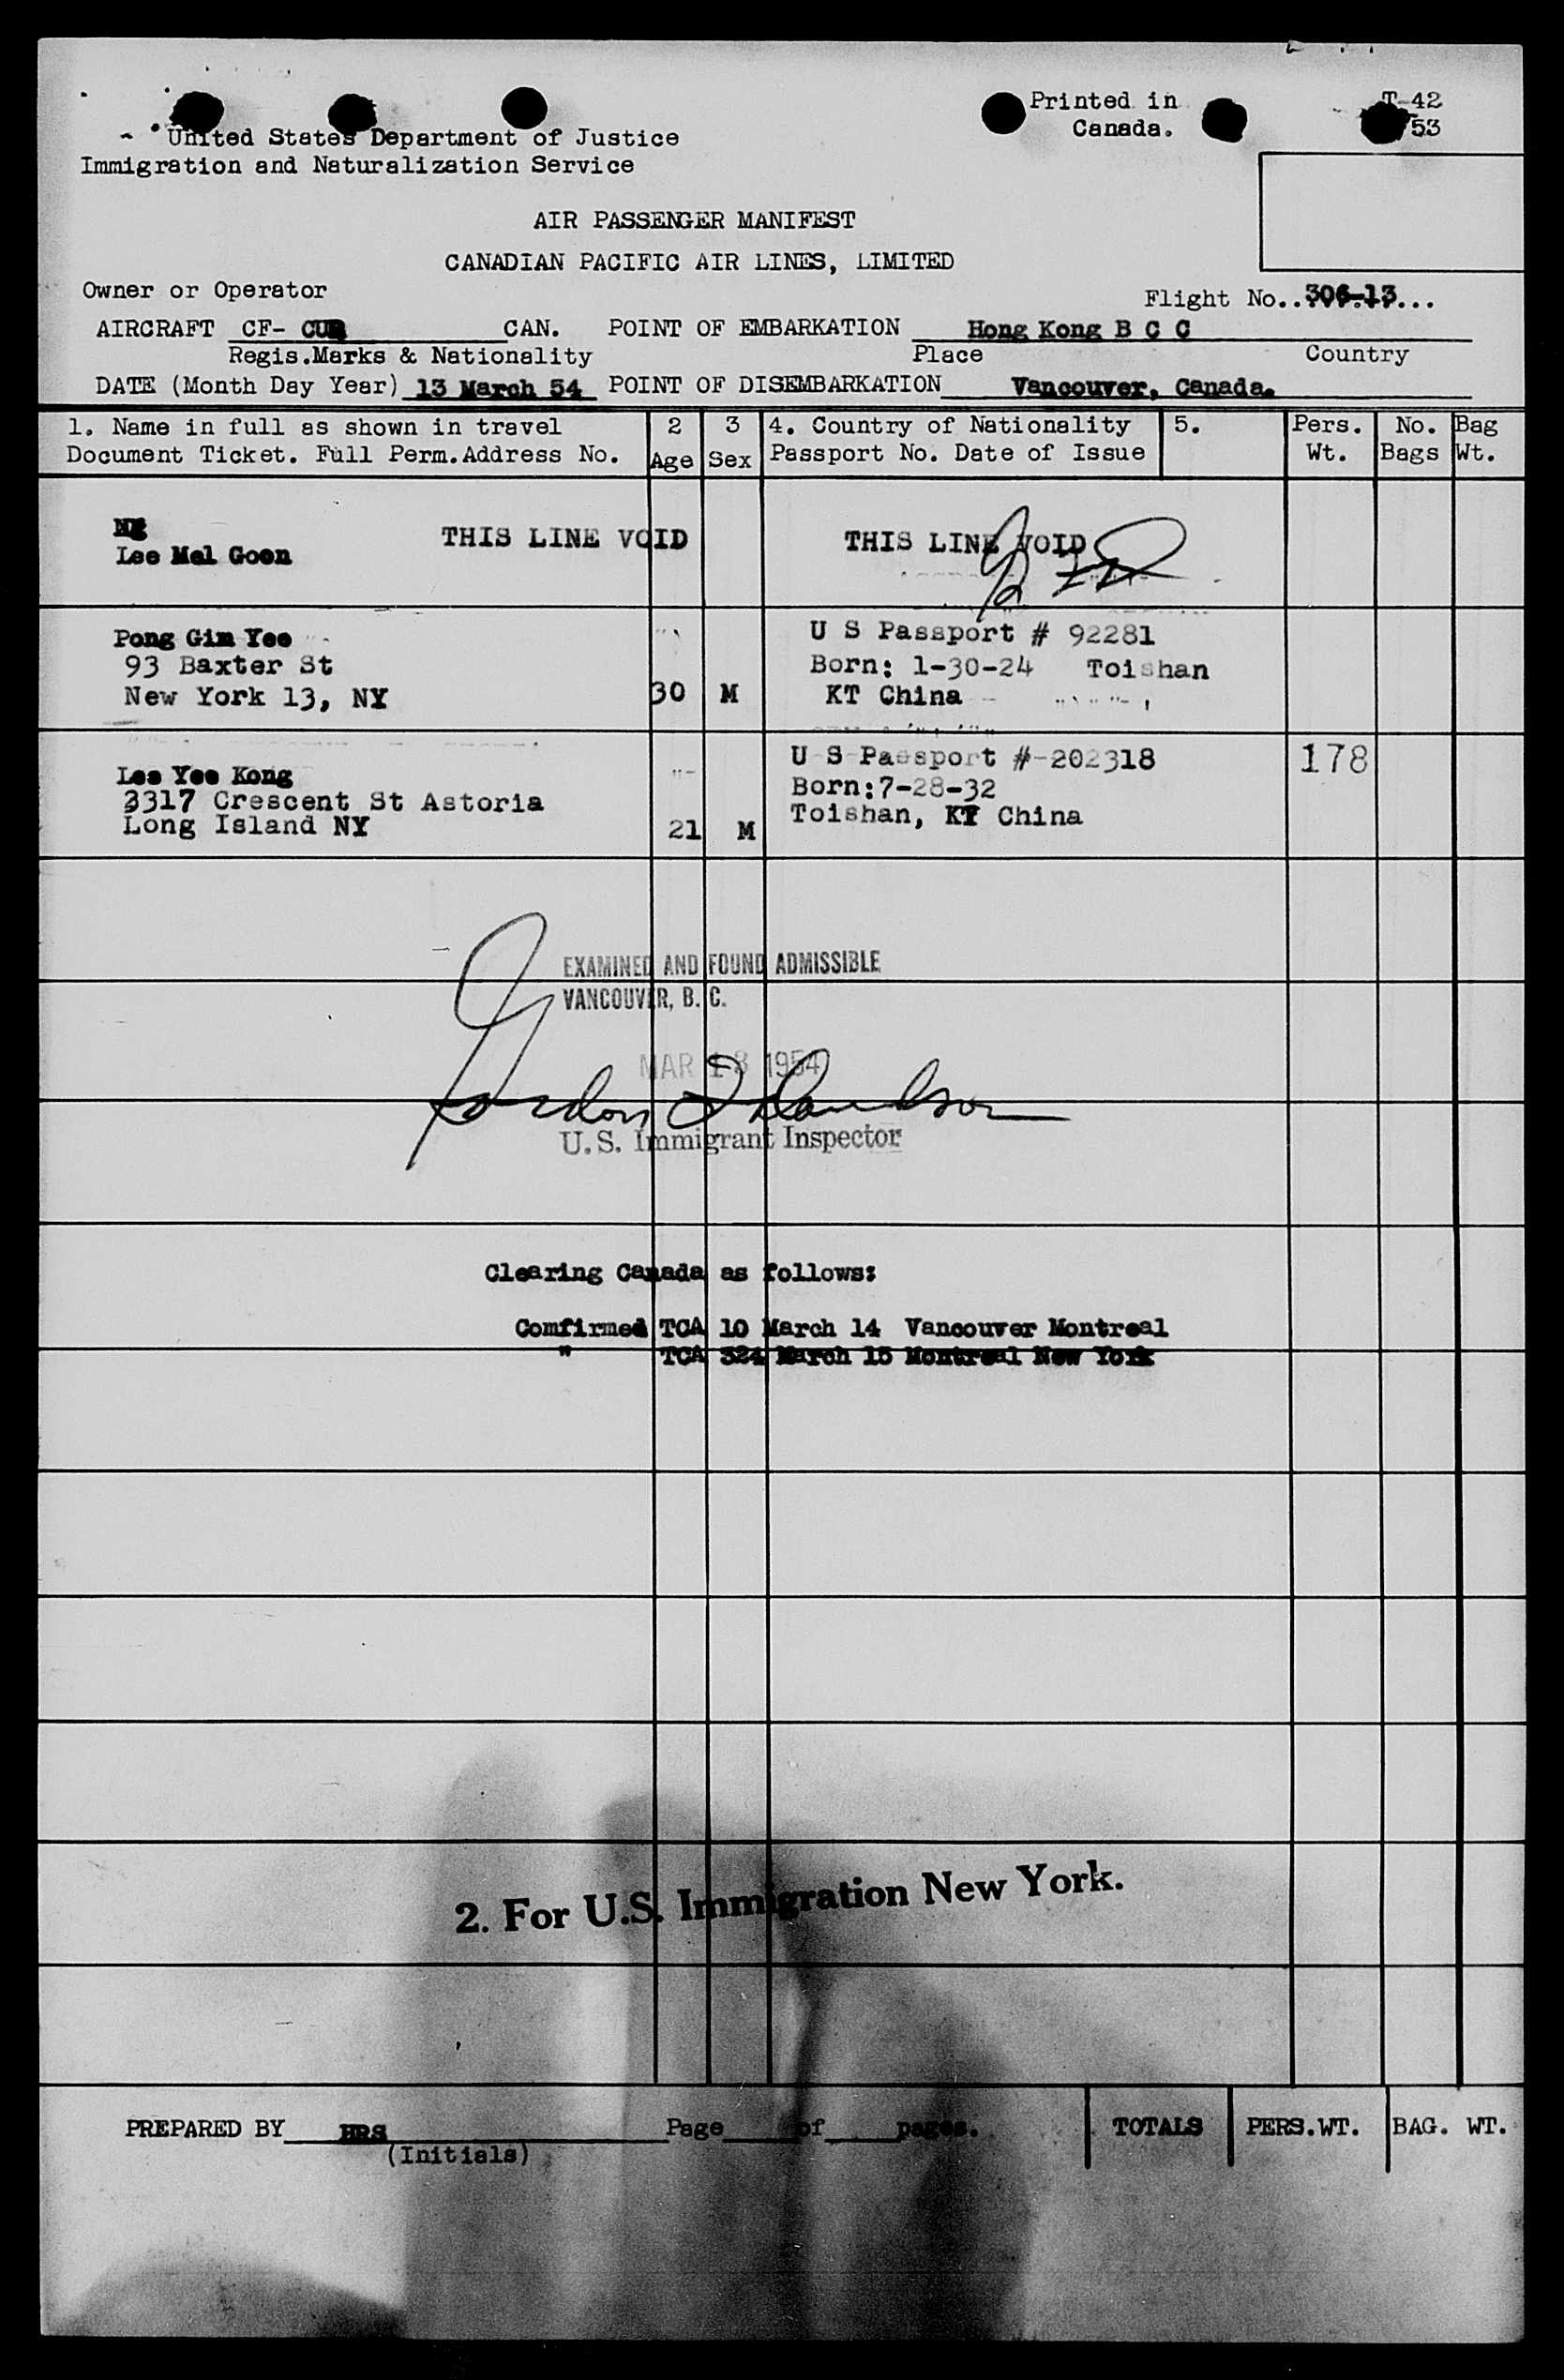 Printed in T-42
Canada. 53
United States Department of Justice
Immigration and Naturalization Service
AIR PASSENGER MANIFEST
CANADIAN PACIFIC AIR LINES, LIMITED
Owner or Operator Flight No..306-13...
AIRCRAFT CF- CAN. POINT OF EMBARKATION Hong Kong B C C
Regis.Marks & Nationality Place Country
DATE (Month Day Year) 13 March 54 POINT OF DISEMBARKATION Vancouver, Canada.
1. Name in full as shown in travel 2 3 4. Country of Nationality 5. Pers. No. Bag
Document Ticket. Full Perm.Address No. Age Sex Passport No. Date of Issue Wt. Bags Wt.
Ng
Lee Mel Goon THIS LINE VOID THIS LINE VOID
Pong Gim Yee U S Passport # 92281
93 Baxter St Born: 1-30-24 Toishan
New York 13, NY 30 M KT China
U S Passport #-202318 178
Lee Yee Kong Born:7-28-32
3317 Crescent St Astoria Toishan, KT China
Long Island NY 21 M
EXAMINED AND FOUND ADMISSIBLE
VANCOUVER, B. C.
MAR 13 1954
Gordon
U.S. Immigrant Inspector
Clearing Canada as follows:
Comfirmed TCA 10 March 14 Vancouver Montreal
" TCA 324 March 15 Montreal New York
2. For U.S. Immigration New York.
PREPARED BY HRS Page of pages. TOTALS PERS.WT. BAG. WT.
(Initials)